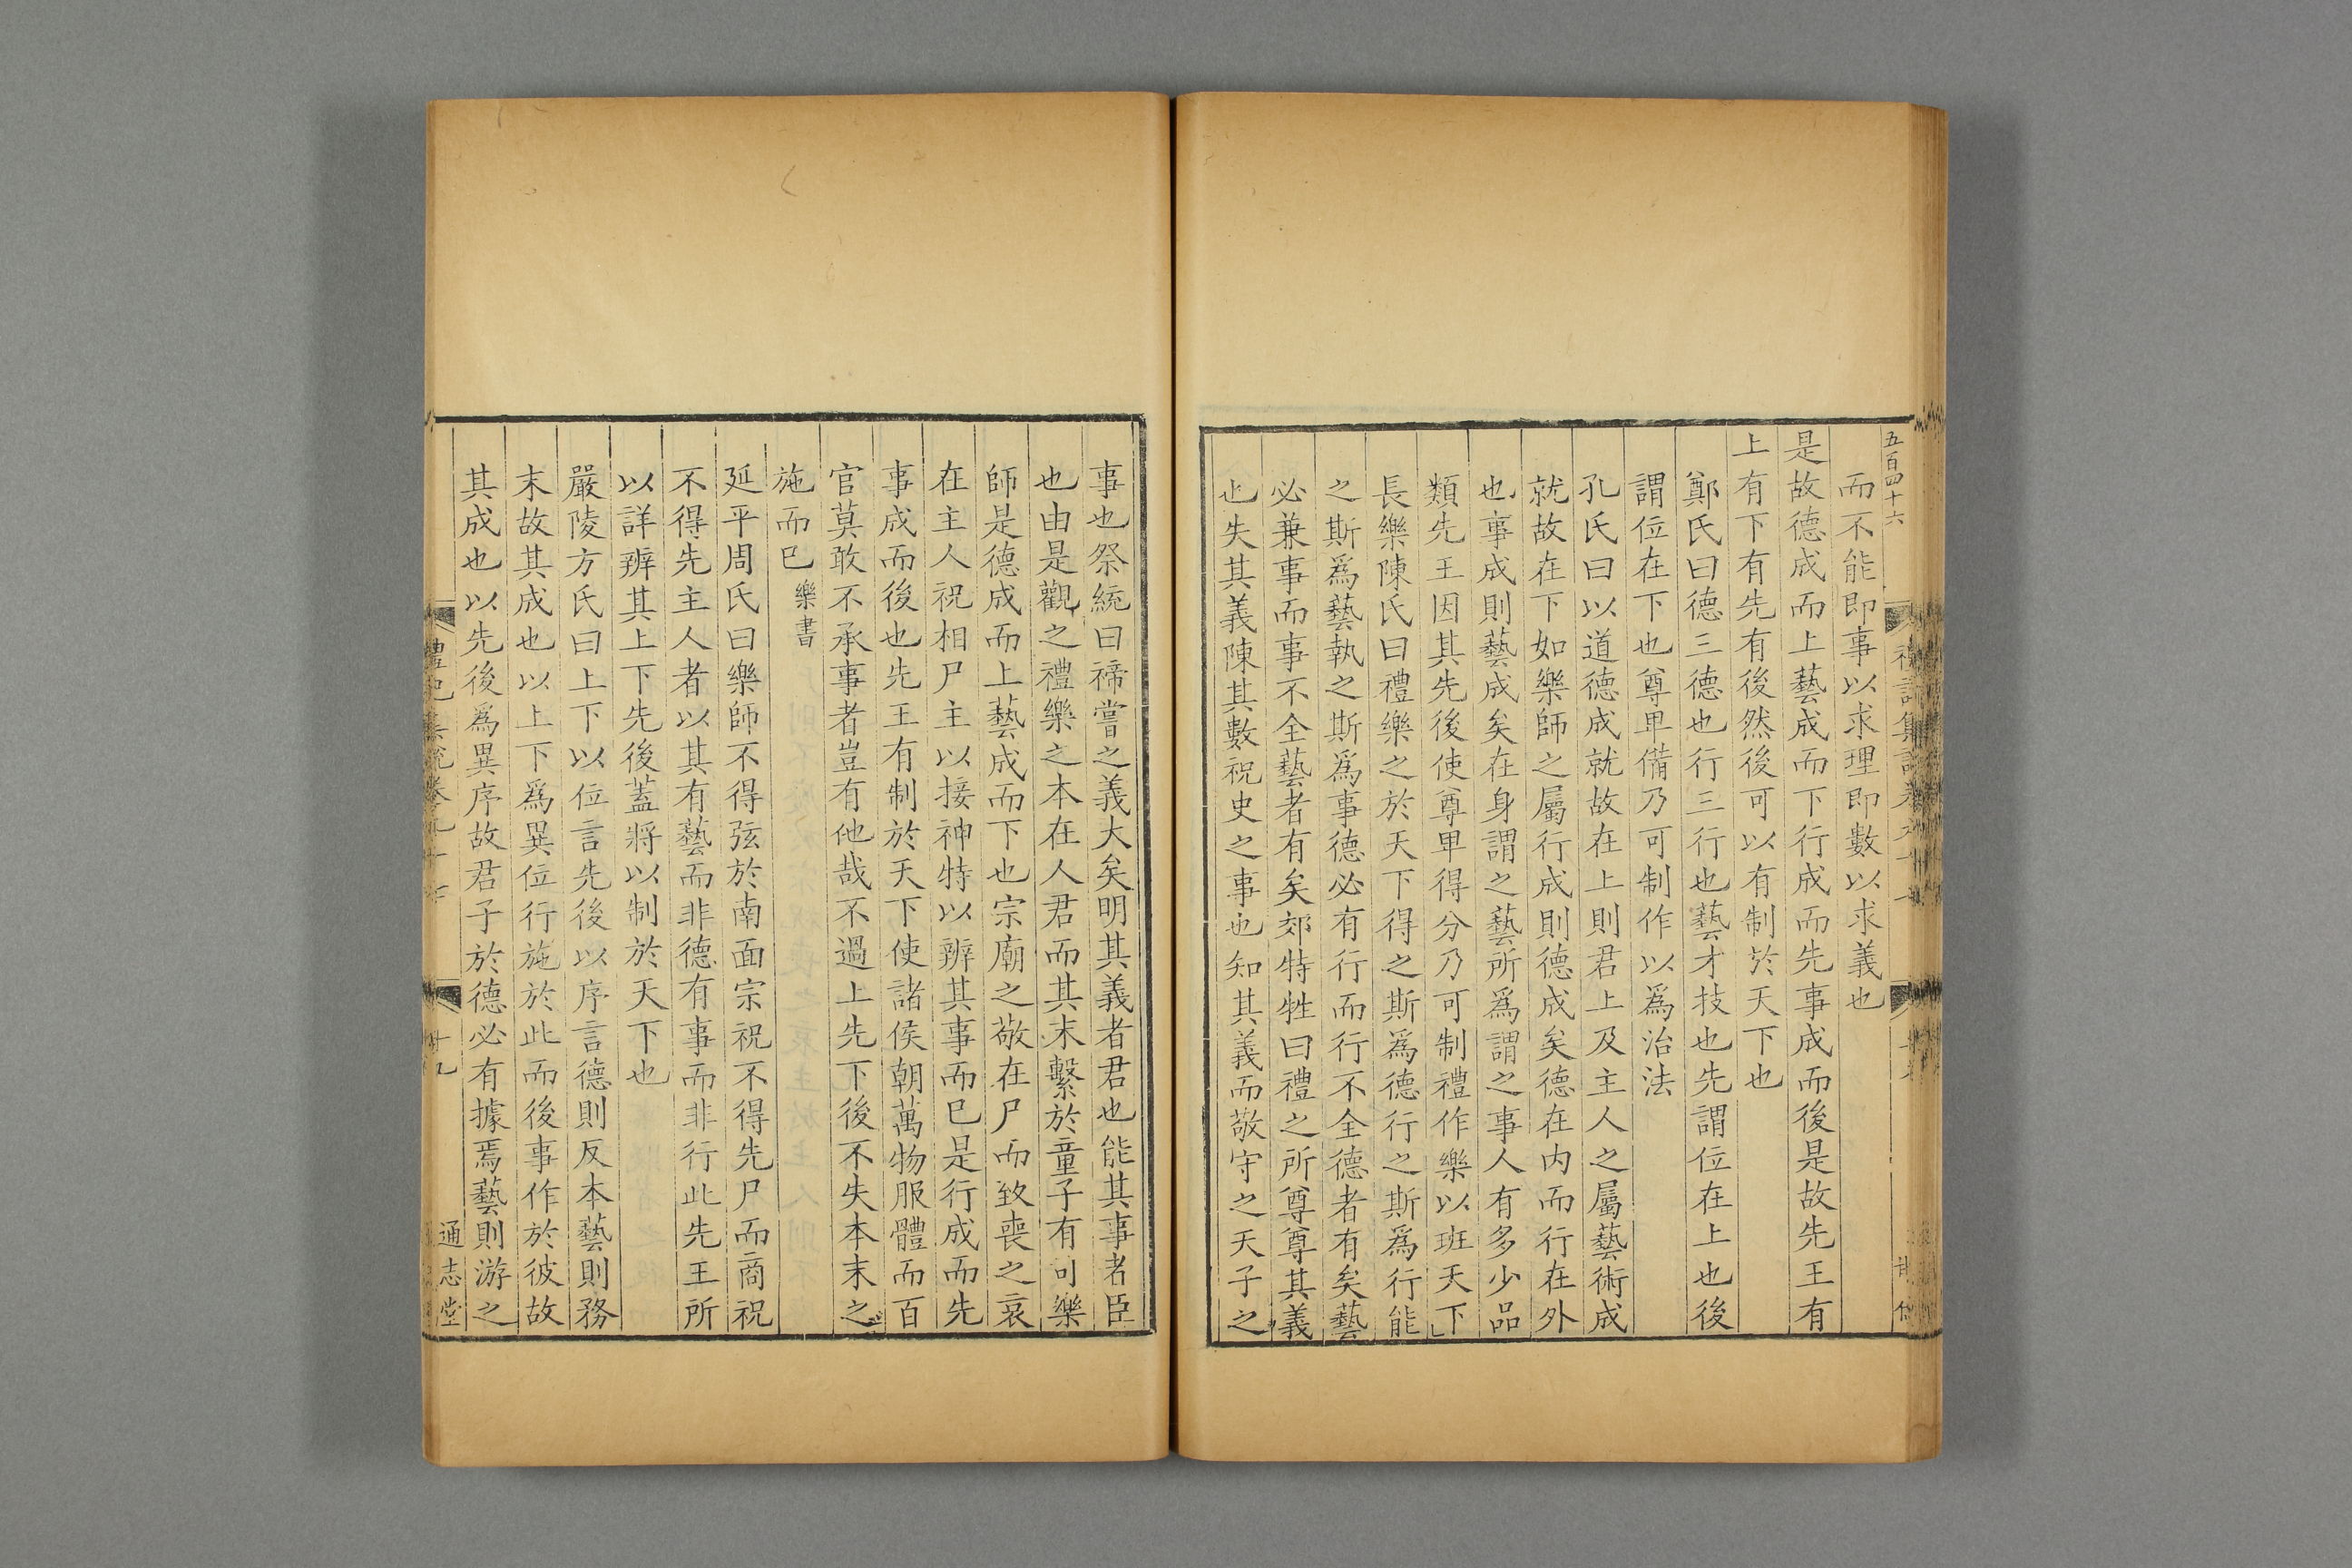 五百四十六
而不能即事以求理即數以求義也
是故德成而上藝成而下行成而先事成而後是故先王有
上有下有先有後然後可以有制於天下也
鄭氏曰德三德也行三行也藝才技也先謂位在上也後
謂位在下也尊卑備乃可制作以為治法
孔氏曰以道德成就故在上則君上及主人之屬藝術成
就故在下如樂師之屬行成則德成矣德在内而行在外
也事成則藝成矣在身謂之藝所為謂之事人有多少品
類先王因其先後使尊卑得分乃可制禮作樂以班天下
長樂陳氏曰禮樂之於天下得之斯為德行之斯為行能
之斯為藝執之斯為事德必有行而行不全德者有矣藝
必兼事而事不全藝者有矣郊特牲曰禮之所尊尊其義
也失其義陳其數祝史之事也知其義而敬守之天子之
事也祭統曰禘嘗之義大矣明其義者君也能其事者臣
也由是觀之禮樂之本在人君而其末繫於童子有司樂
師是德成而上藝成而下也宗廟之敬在尸而致喪之哀
在主人祝相尸主以接神特以辨其事而已是行成而先
事成而後也先王有制於天下使諸侯朝萬物服體而百
官莫敢不承事者豈有他哉不過上先下後不失本末之
施而已樂書
延平周氏曰樂師不得弦於南面宗祝不得先尸而商祝
不得先主人者以其有藝而非德有事而非行此先王所
以詳辨其上下先後蓋將以制於天下也
嚴陵方氏曰上下以位言先後以序言德則反本藝則務
末故其成也以上下為異位行施於此而後事作於彼故
其成也以先後為異序故君子於德必有據焉藝則游之
禮記集說卷九十七 十九 通志堂